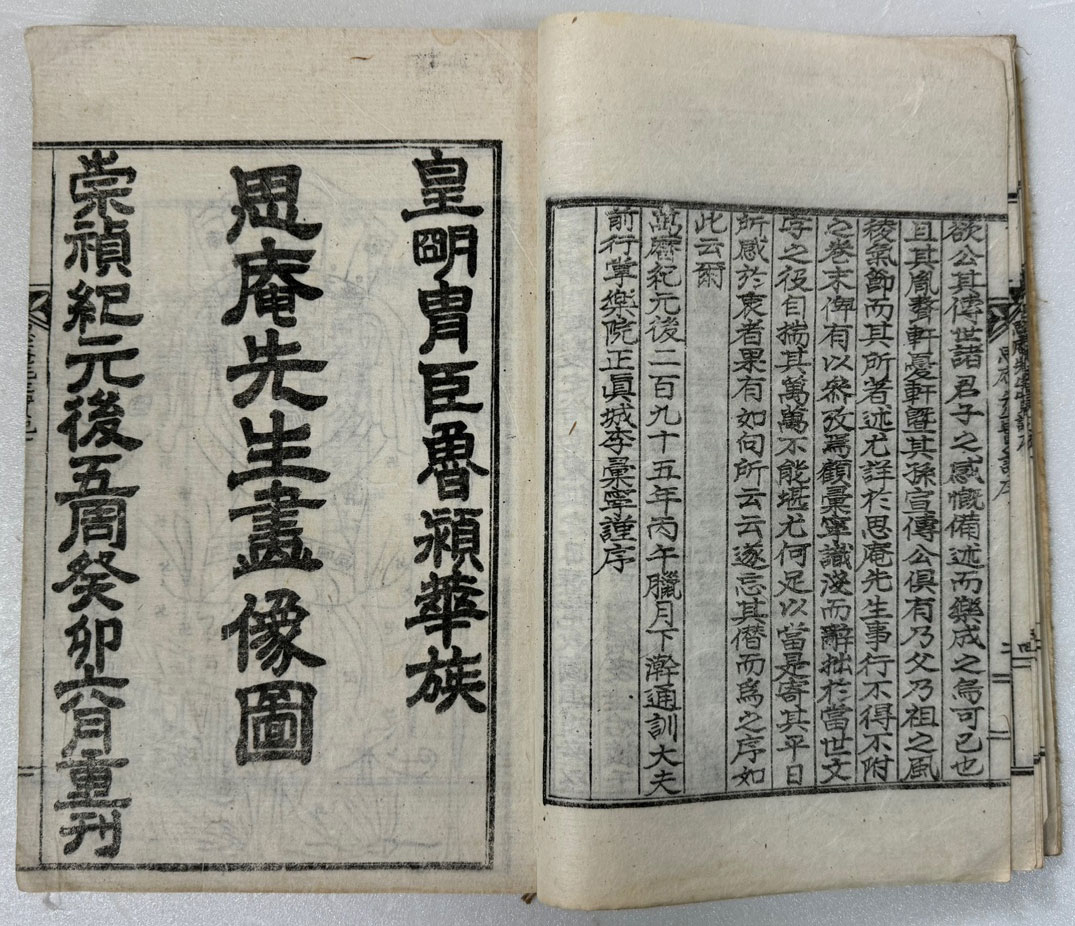 欲公其傳世諸君子之感慨備述而樂成之烏可已也
且其胤聱軒憂軒曁其孫宣傳公俱有乃父乃祖之風
稜氣節而其所者述尤詳於思庵先生事行不得不附
之卷末俾有以叅攷焉顧彙寧識淺而辭拙於當世文
字之役自揣其萬萬不能堪尤何足以當是寄其平日
所感於衷者果有如向所云云遂忘其僭而爲之序如
此云爾
萬曆紀元後二百九十五年丙午臘月下澣通訓大夫
前行掌樂院正眞城李彙寧謹序
皇明冑臣魯潁華族
思庵先生畫像圖
崇禎紀元後五周癸卯六月重刊